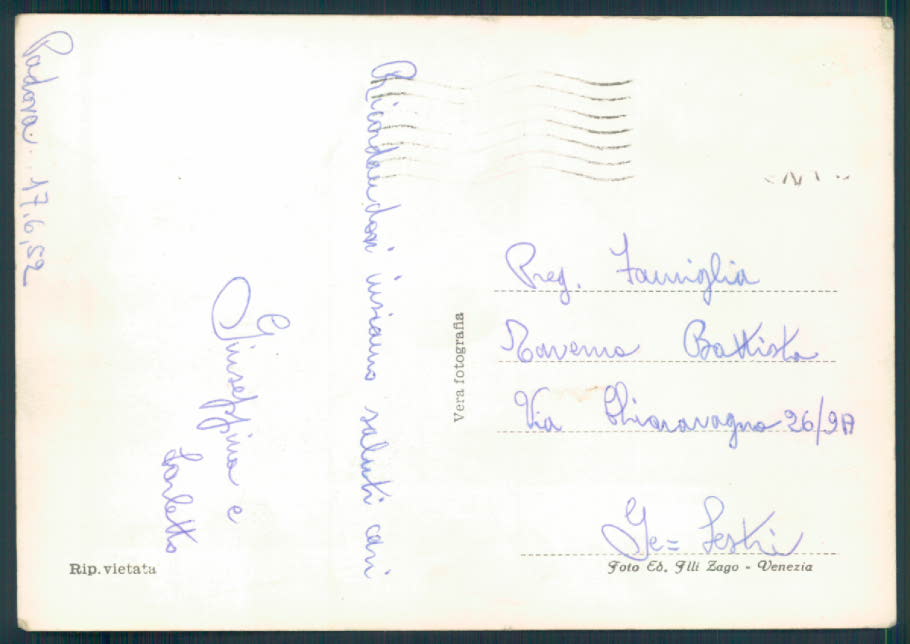 Padova.. 17.6.52
Ricordandosi inviamo saluti cari
Giuseppina e
Carletto
Vera fotografia
Preg. Famiglia
Taverna Battista
Via Chiaravagna 26/9A
Ge = Sestri
Rip. vietata
Foto Ed. Flli Zago - Venezia